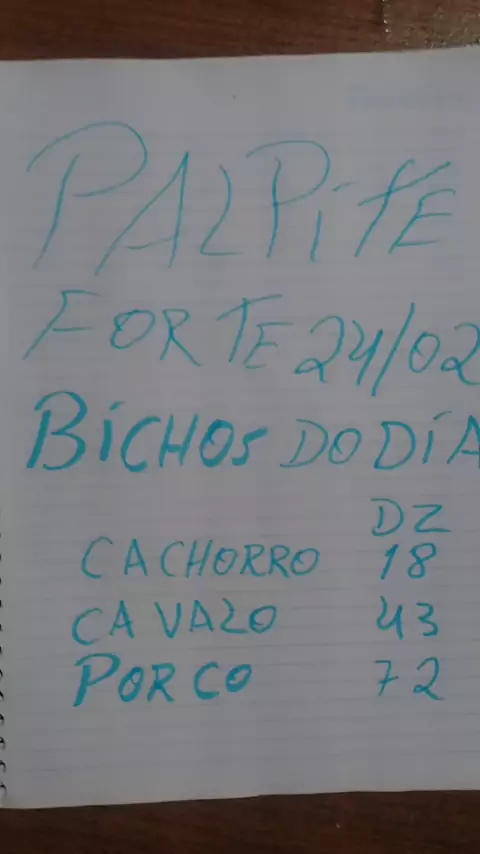 PALPiTE
FORTE 24/02
BíCHOS DO DíA
DZ
CACHORRO 18
CAVALO 43
PORCO 72